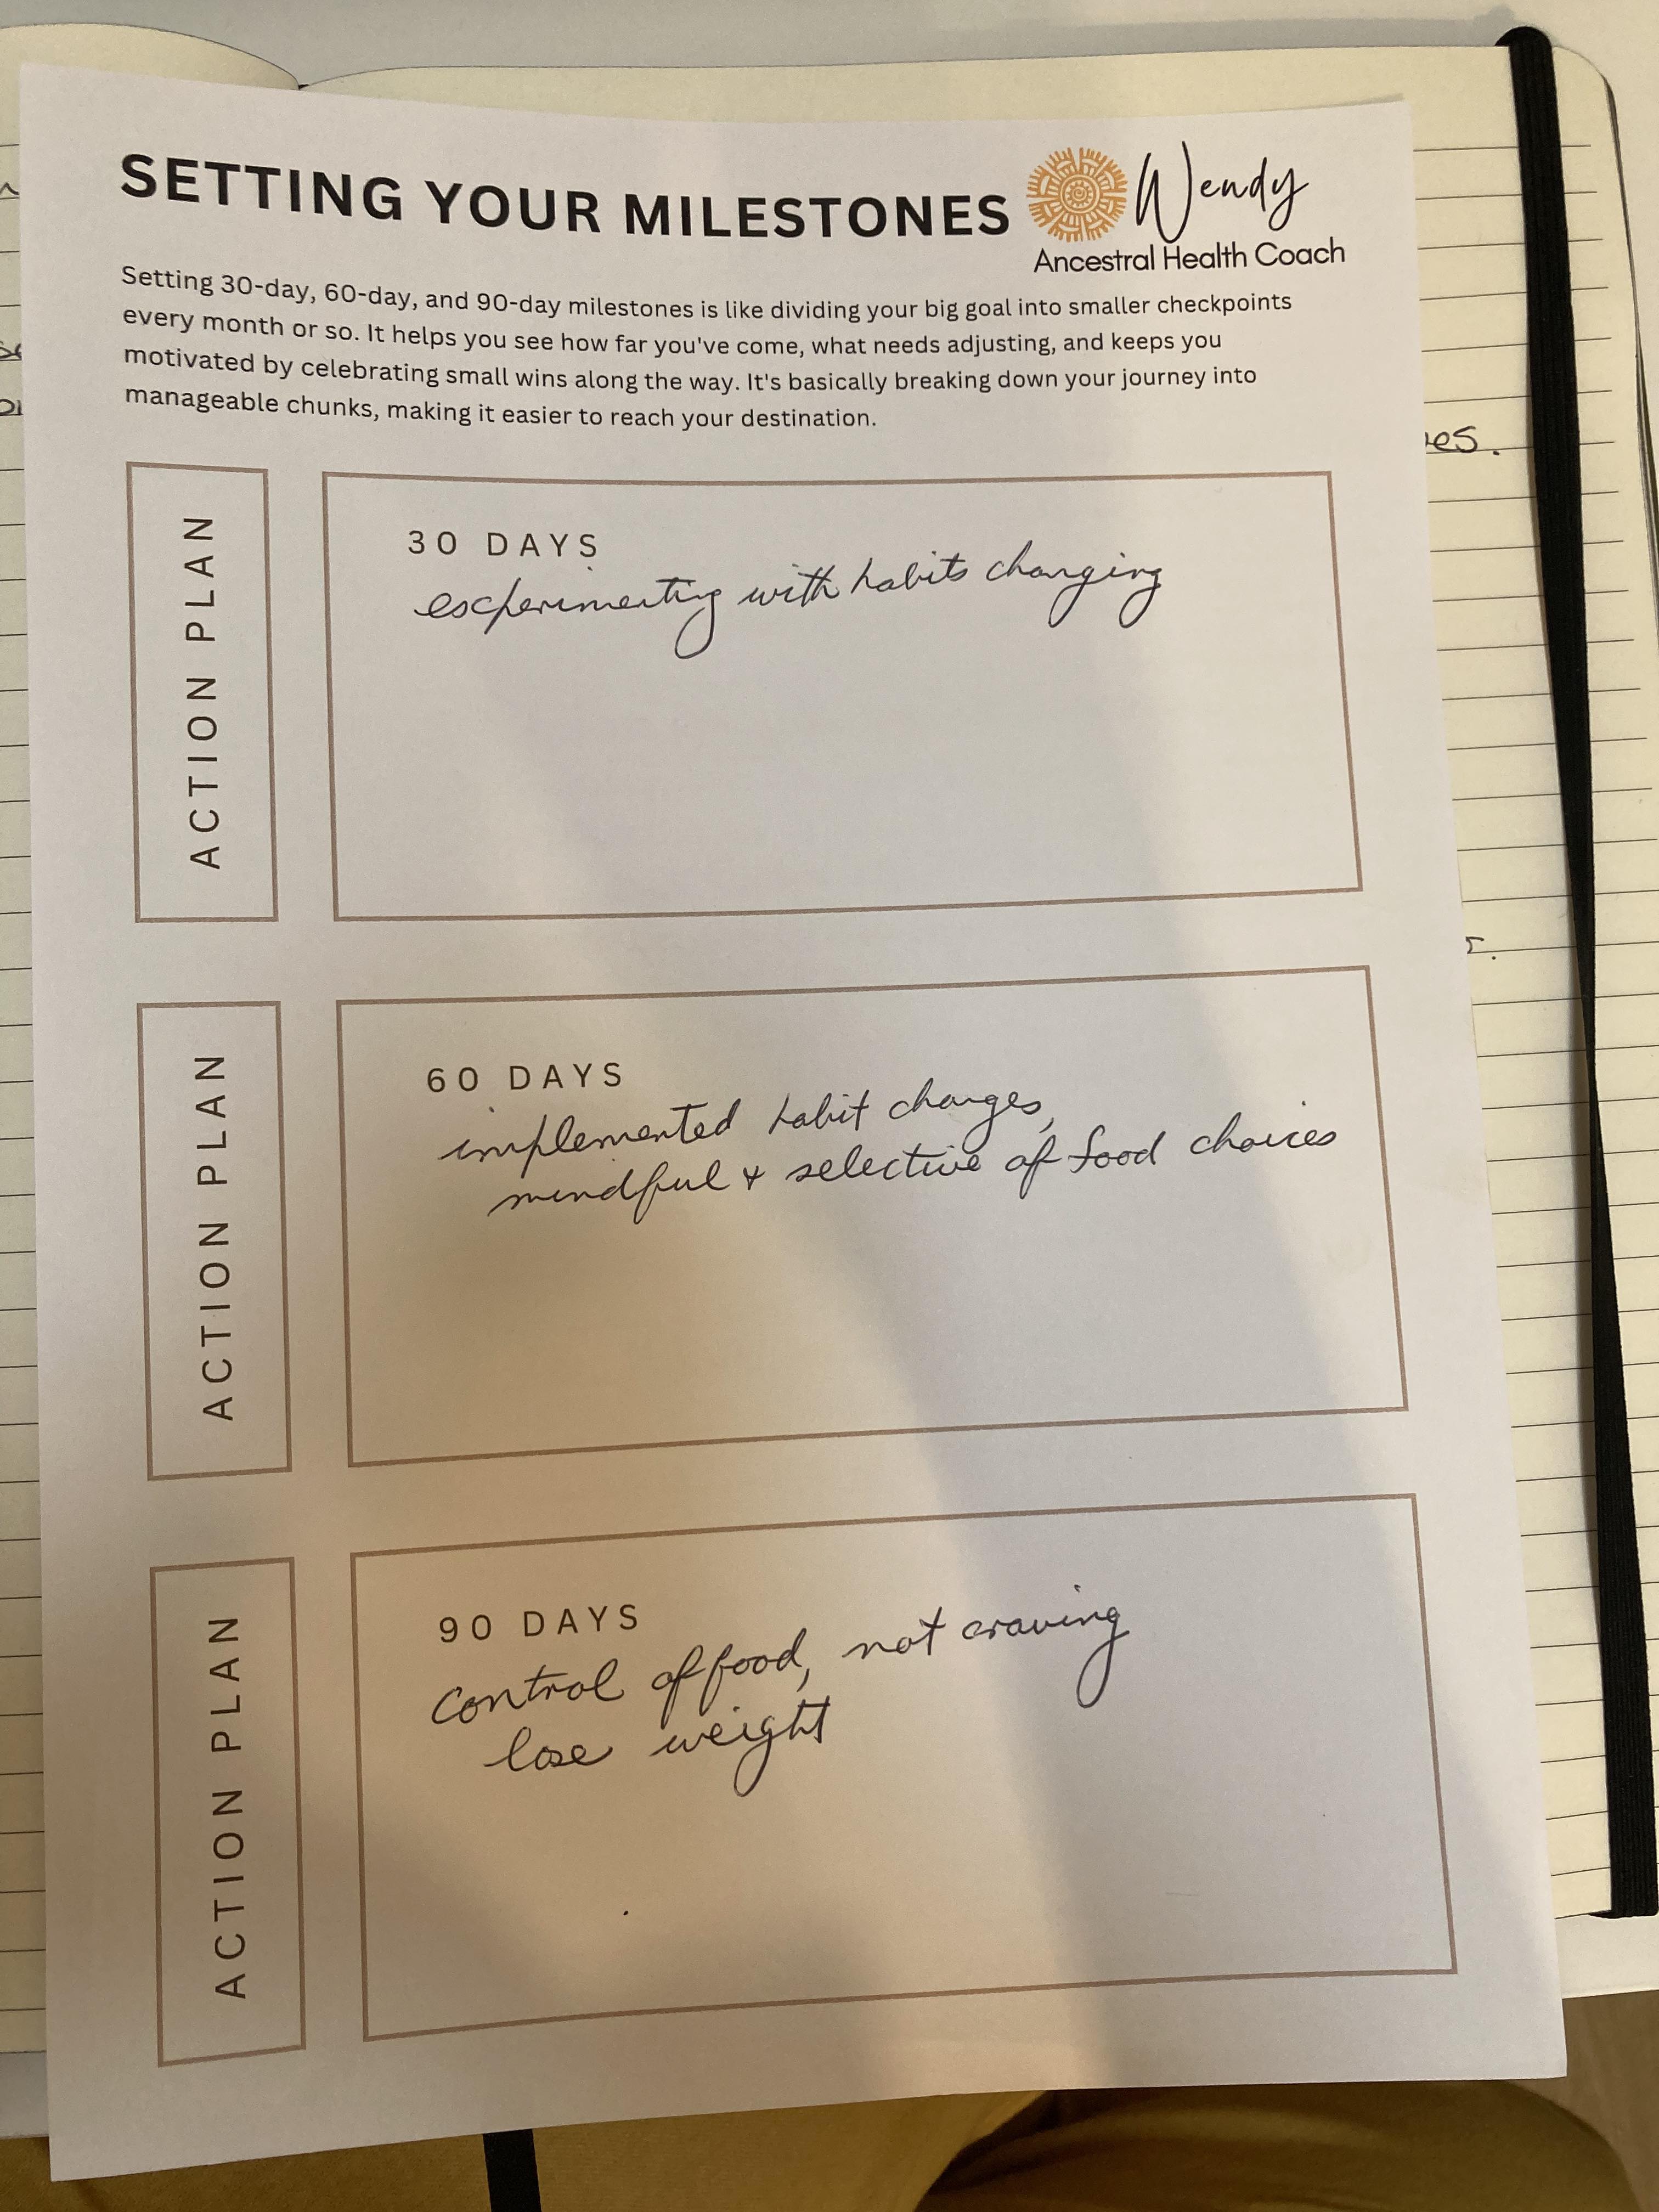 SETTING YOUR MILESTONES
Wendy
Ancestral Health Coach
Setting 30-day, 60-day, and 90-day milestones is like dividing your big goal into smaller checkpoints
every month or so. It helps you see how far you've come, what needs adjusting, and keeps you
motivated by celebrating small wins along the way. It's basically breaking down your journey into
manageable chunks, making it easier to reach your destination.
ACTION PLAN
30 DAYS
experimenting with habits changing
ACTION PLAN
60 DAYS
implemented habit changes,
mindful & selective of food choices
ACTION PLAN
90 DAYS
control of food, not craving
lose weight